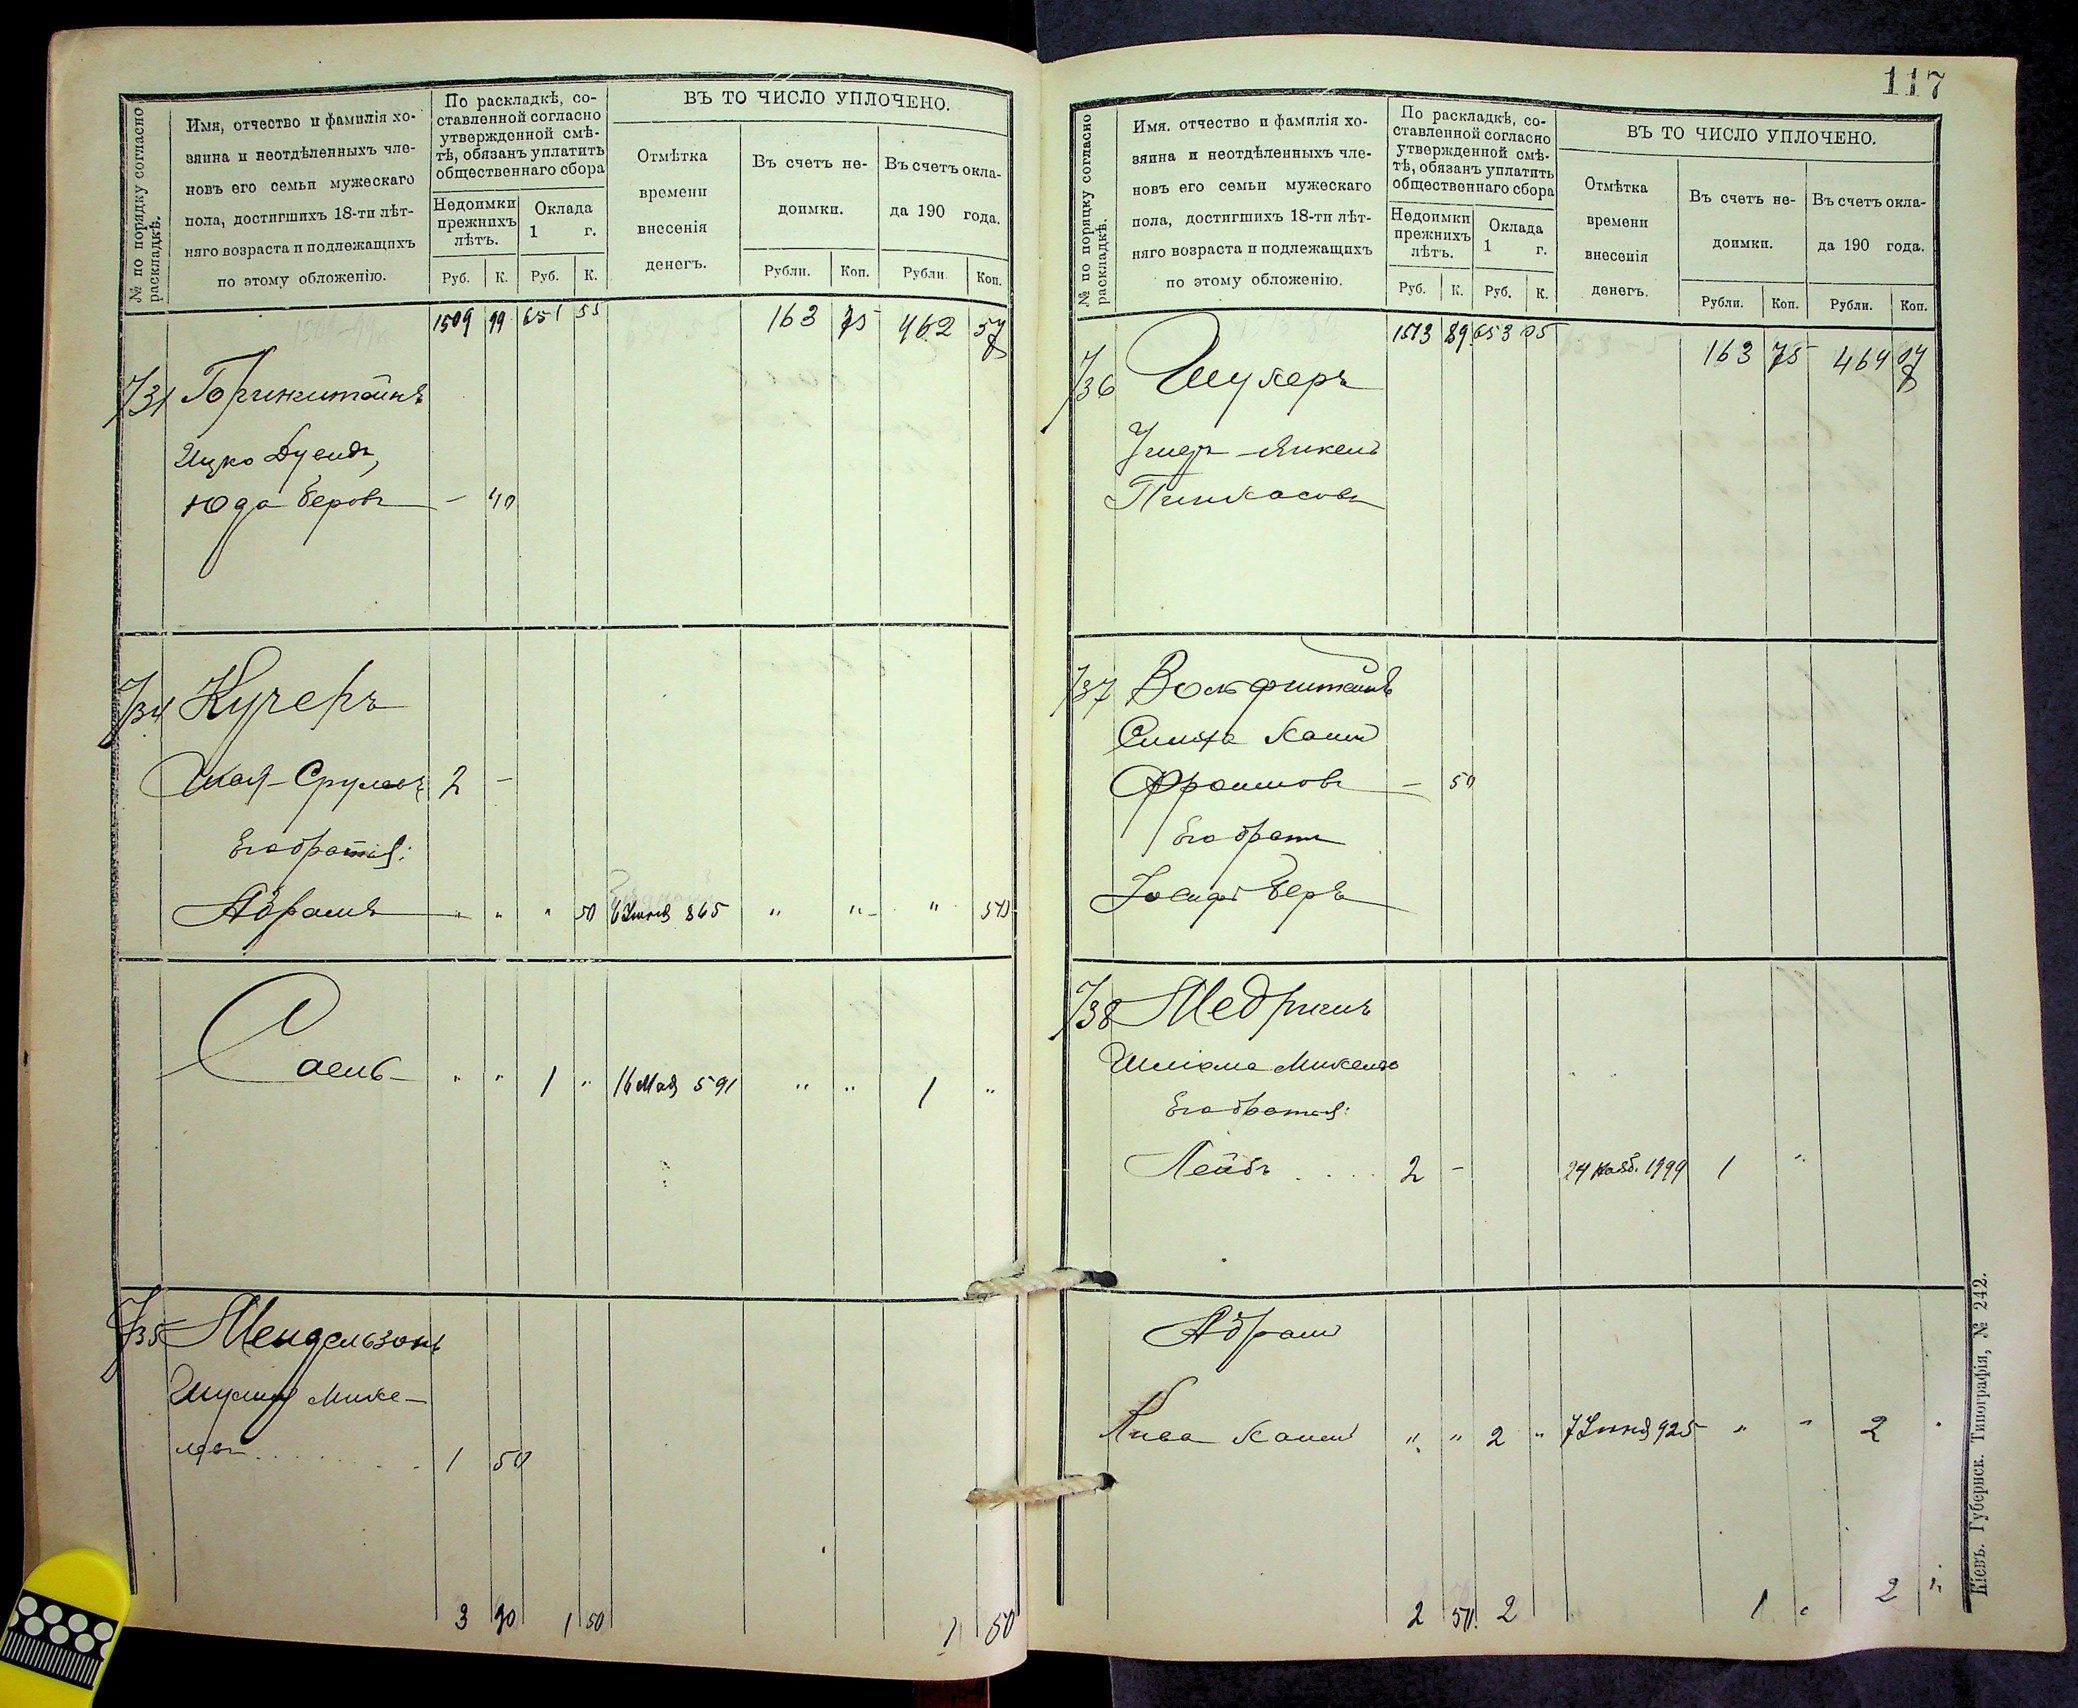 № по порядку согласно раскладкѣ.
Имя, отчество и фамилія хо-
зяина и неотдѣленныхъ чле-
новъ его семьи мужескаго
пола, достигшихъ 18-ти лѣт-
няго возраста и подлежащихъ
по этому обложенію.
По раскладкѣ, со-
ставленной согласно
утвержденной смѣ-
тѣ, обязанъ уплатить
общественнаго сбора
Недоимки прежнихъ лѣтъ.
Оклада 1 г.
Руб. К. Руб. К.
ВЪ ТО ЧИСЛО УПЛОЧЕНО.
Отмѣтка
времени
внесенія
денегъ.
Въ счетъ не-
доимки.
Въ счетъ окла-
да 190 года.
Рубли. Коп. Рубли. Коп.
1509 99 651 55 163 75 462 57
731
Ицко Дувидъ,
Юда Беровъ — 40
734 Кучеръ
Шая-Сруловъ 2 —
Его братья:
Абрамъ " " " 50 6 Іюня 865 " " " 50
Саель " " 1 " 16 Мая 591 " " 1 "
735 Мендельзонъ
Шулимъ Мике-
левъ 1 50
3 90 1 50 1 50
117
№ по порядку согласно раскладкѣ.
Имя, отчество и фамилія хо-
зяина и неотдѣленныхъ чле-
новъ его семьи мужескаго
пола, достигшихъ 18-ти лѣт-
няго возраста и подлежащихъ
по этому обложенію.
По раскладкѣ, со-
ставленной согласно
утвержденной смѣ-
тѣ, обязанъ уплатить
общественнаго сбора
Недоимки прежнихъ лѣтъ.
Оклада 1 г.
Руб. К. Руб. К.
ВЪ ТО ЧИСЛО УПЛОЧЕНО.
Отмѣтка
времени
внесенія
денегъ.
Въ счетъ не-
доимки.
Въ счетъ окла-
да 190 года.
Рубли. Коп. Рубли. Коп.
1513 89 653 05 163 75 464 07
736 Шукеръ
Умеръ-Янкель
Пинкасовъ
737 Вольфштейнъ
Симха Хаимъ
Фроимовъ — 50
Его братъ
Іосифъ Беръ
738 Медникъ
Шлома Микель
Его братья:
Лейбъ . . . . 2 — 24 Нояб. 1999 1 "
Абрамъ
Акива Хаимъ " " 2 " 7 Іюня 925 " " 2 "
2 50 2 1 " 2 "
Кіевъ. Губернск. Типографія, № 242.